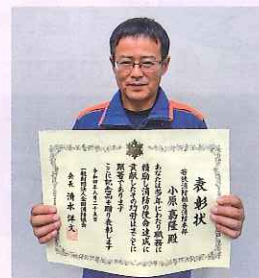 表彰状
若狭消防組合消防本部
小原嘉隆殿
あなたは多年にわたり職務に
精励し消防の使命達成に
貢献したその功労はまことに
顕著であります
ここに記念品を贈り表彰します
令和四年八月二十五日
一般財団法人全国消防協会
会長 清水洋文